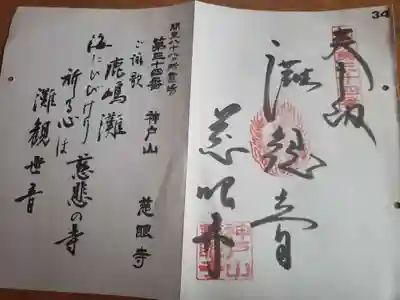 34
奉納
灘観音
慈眼寺
関東八十八ヵ所霊場
第三十四番 神戸山 慈眼寺
ご詠歌
鹿嶋灘
海にひびけり 慈悲の寺
祈る心は
灘観世音